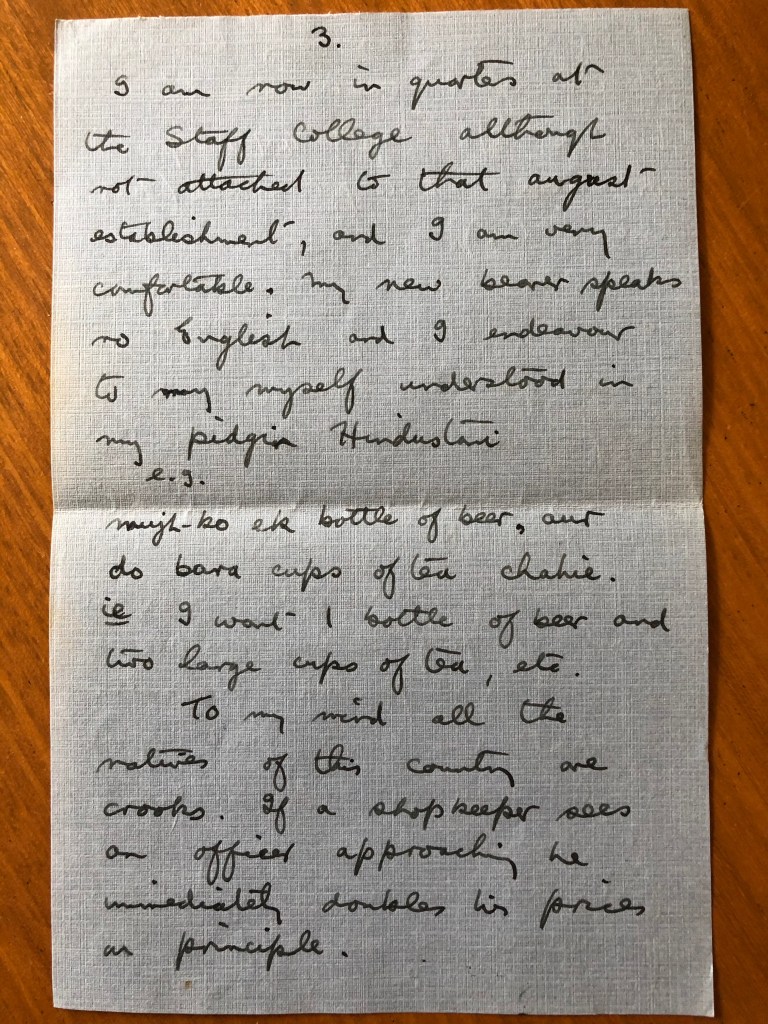 3.
I am now in quarters at
the Staff College although
not attached to that august
establishment, and I am very
comfortable. My new bearer speaks
no English and I endeavour
to may myself understood in
my pidgin Hindustani
e.g.
mujh-ko ek bottle of beer, aur
do bara cups of tea chahie.
ie I want 1 bottle of beer and
two large cups of tea, etc.
To my mind all the
natives of this country are
crooks. If a shopkeeper sees
an officer approaching he
immediately doubles his prices
on principle.